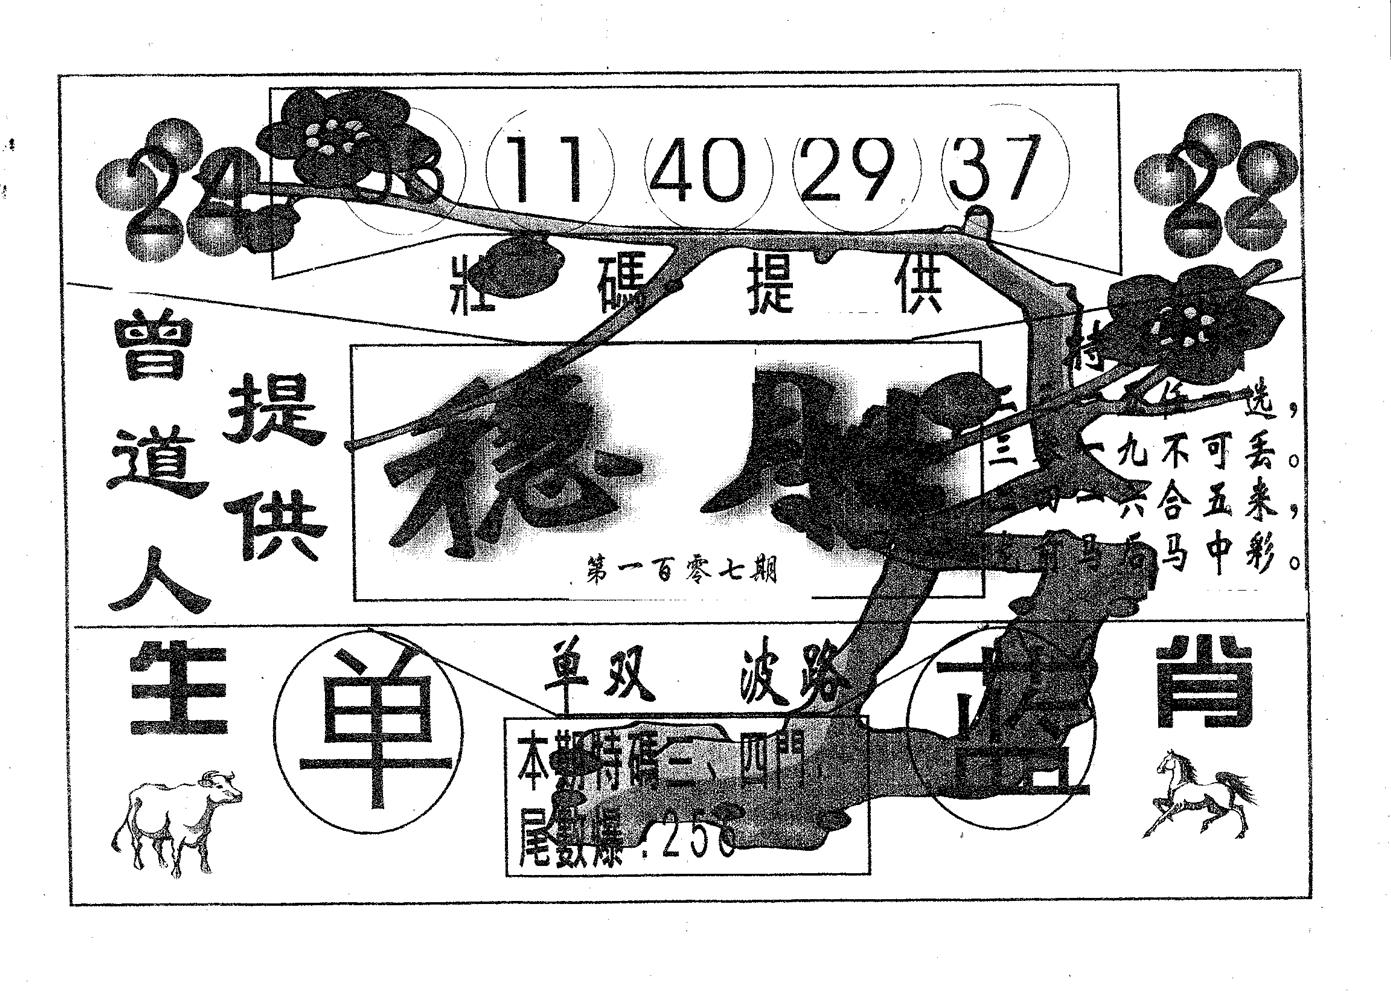 24
03 11 40 29 37
22
壯碼提供
曾道人
提供
稳胜
第一百零七期
特
任一选，
三 一九不可丢。
一六合五来，
马后马中彩。
生
单
单双 波路
蓝
肖
本期特碼三、四門，
尾數爆：256